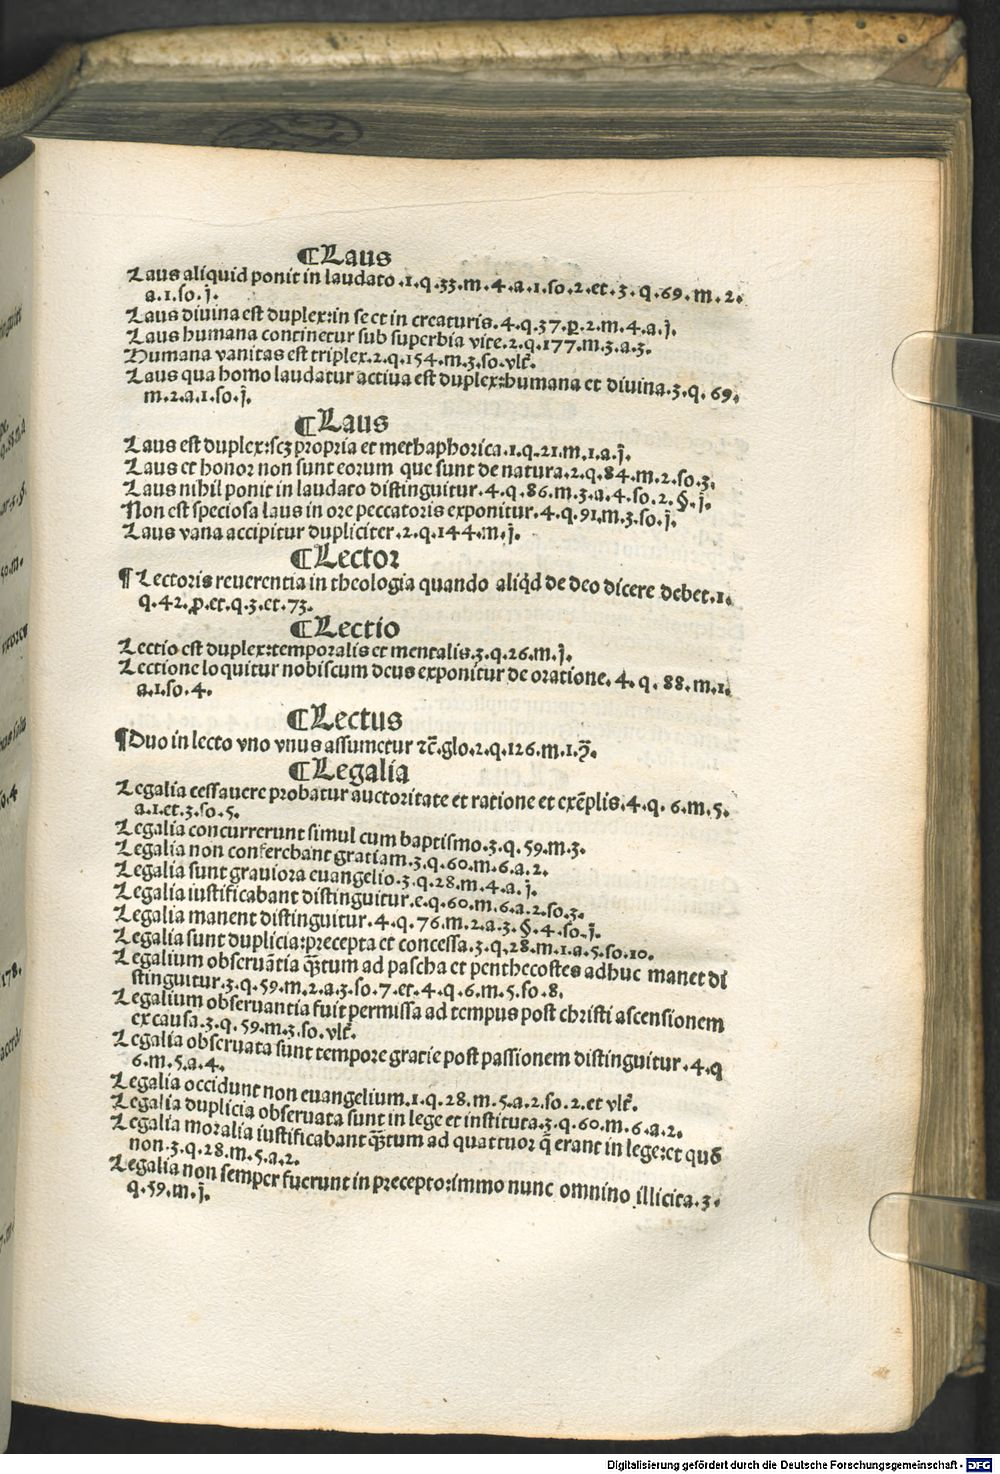 ¶Laus
Laus aliquid ponit in laudato .1.q.33.m.4.a.1.so.2.et.3.q.69.m.2.
a.1.so.j.
Laus diuina est duplex:in se et in creaturis.4.q.37.p̱.2.m.4.a.j.
Laus humana continetur sub superbia vite.2.q.177.m.3.a.3.
Humana vanitas est triplex.2.q.154.m.3.so.vlt̄.
Laus qua homo laudatur actiua est duplex:humana et diuina.3.q.69.
m.2.a.1.so.j.
¶Laus
Laus est duplex:scꝫ propria et methaphorica.1.q.21.m.1.a.j.
Laus et honor non sunt eorum que sunt de natura.2.q.84.m.2.so.3.
Laus nihil ponit in laudato distinguitur.4.q.86.m.3.a.4.so.2.§.j.
Non est speciosa laus in ore peccatoris exponitur.4.q.91.m.3.so.j.
Laus vana accipitur dupliciter.2.q.144.m.j.
¶Lector
¶ Lectoris reuerentia in theologia quando aliqd̄ de deo dicere debet.1.
q.42.p̱.et.q.3.et.73.
¶Lectio
Lectio est duplex:temporalis et mentalis.3.q.26.m.j.
Lectione loquitur nobiscum deus exponitur de oratione.4.q.88.m.1.
a.1.so.4.
¶Lectus
¶Duo in lecto vno vnus assumetur ⁊c̄.glo.2.q.126.m.1.
¶Legalia
Legalia cessauere probatur auctoritate et ratione et exēplis.4.q.6.m.5.
a.1.et.3.so.5.
Legalia concurrerunt simul cum baptismo.3.q.59.m.3.
Legalia non conferebant gratiam.3.q.60.m.6.a.2.
Legalia sunt grauiora euangelio.3.q.28.m.4.a.j.
Legalia iustificabant distinguitur.e.q.60.m.6.a.2.so.3.
Legalia manent distinguitur.4.q.76.m.2.a.3.§.4.so.j.
Legalia sunt duplicia:precepta et concessa.3.q.28.m.1.a.5.so.10.
Legalium obseruātia q̄ꝫtum ad pascha et penthecostes adhuc manet di
stinguitur.3.q.59.m.2.a.3.so.7.et.4.q.6.m.5.so.8.
Legalium obseruantia fuit permissa ad tempus post christi ascensionem
ex causa.3.q.59.m.3.so.vlt̄.
Legalia obseruata sunt tempore gratie post passionem distinguitur.4.q
6.m.5.a.4.
Legalia occidunt non euangelium.1.q.28.m.5.a.2.so.2.et vlt̄.
Legalia duplicia obseruata sunt in lege et instituta.3.q.60.m.6.a.2.
Legalia moralia iustificabant q̄ꝫtum ad quattuor q̄ erant in lege:et quō
non.3.q.28.m.5.a.2.
Legalia non semper fuerunt in precepto:immo nunc omnino illicita.3.
q.59.m.j.
Digitalisierung gefördert durch die Deutsche Forschungsgemeinschaft - DFG